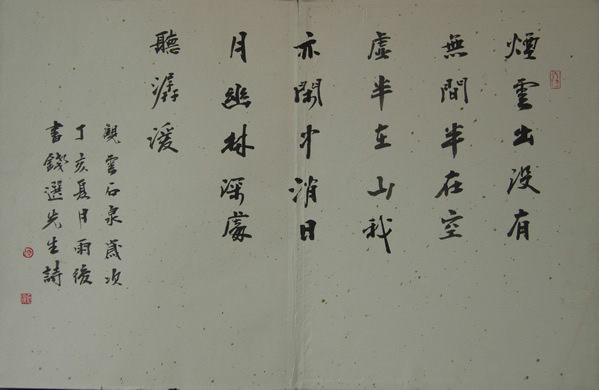 煙雲出没有
無間半在空
虛半在山我
亦閑中消日
月幽林深處
聽潺湲
觀雲石泉歲次
丁亥夏月雨後
書錢選先生詩